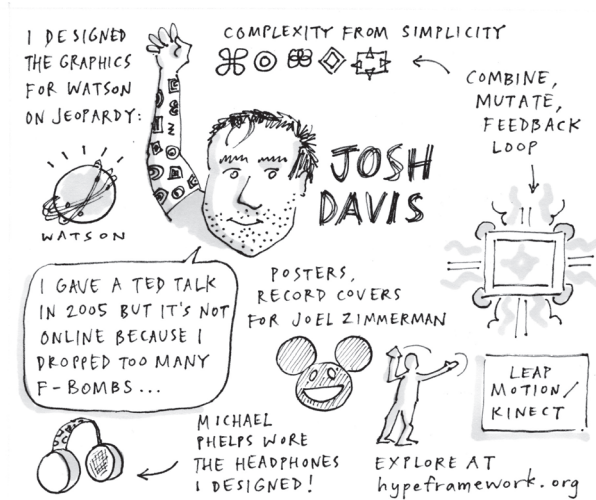 I DESIGNED
THE GRAPHICS
FOR WATSON
ON JEOPARDY:
WATSON
COMPLEXITY FROM SIMPLICITY
COMBINE,
MUTATE,
FEEDBACK
LOOP
JOSH
DAVIS
I GAVE A TED TALK
IN 2005 BUT IT'S NOT
ONLINE BECAUSE I
DROPPED TOO MANY
F-BOMBS...
POSTERS,
RECORD COVERS
FOR JOEL ZIMMERMAN
LEAP
MOTION/
KINECT
MICHAEL
PHELPS WORE
THE HEADPHONES
I DESIGNED!
EXPLORE AT
hypeframework.org